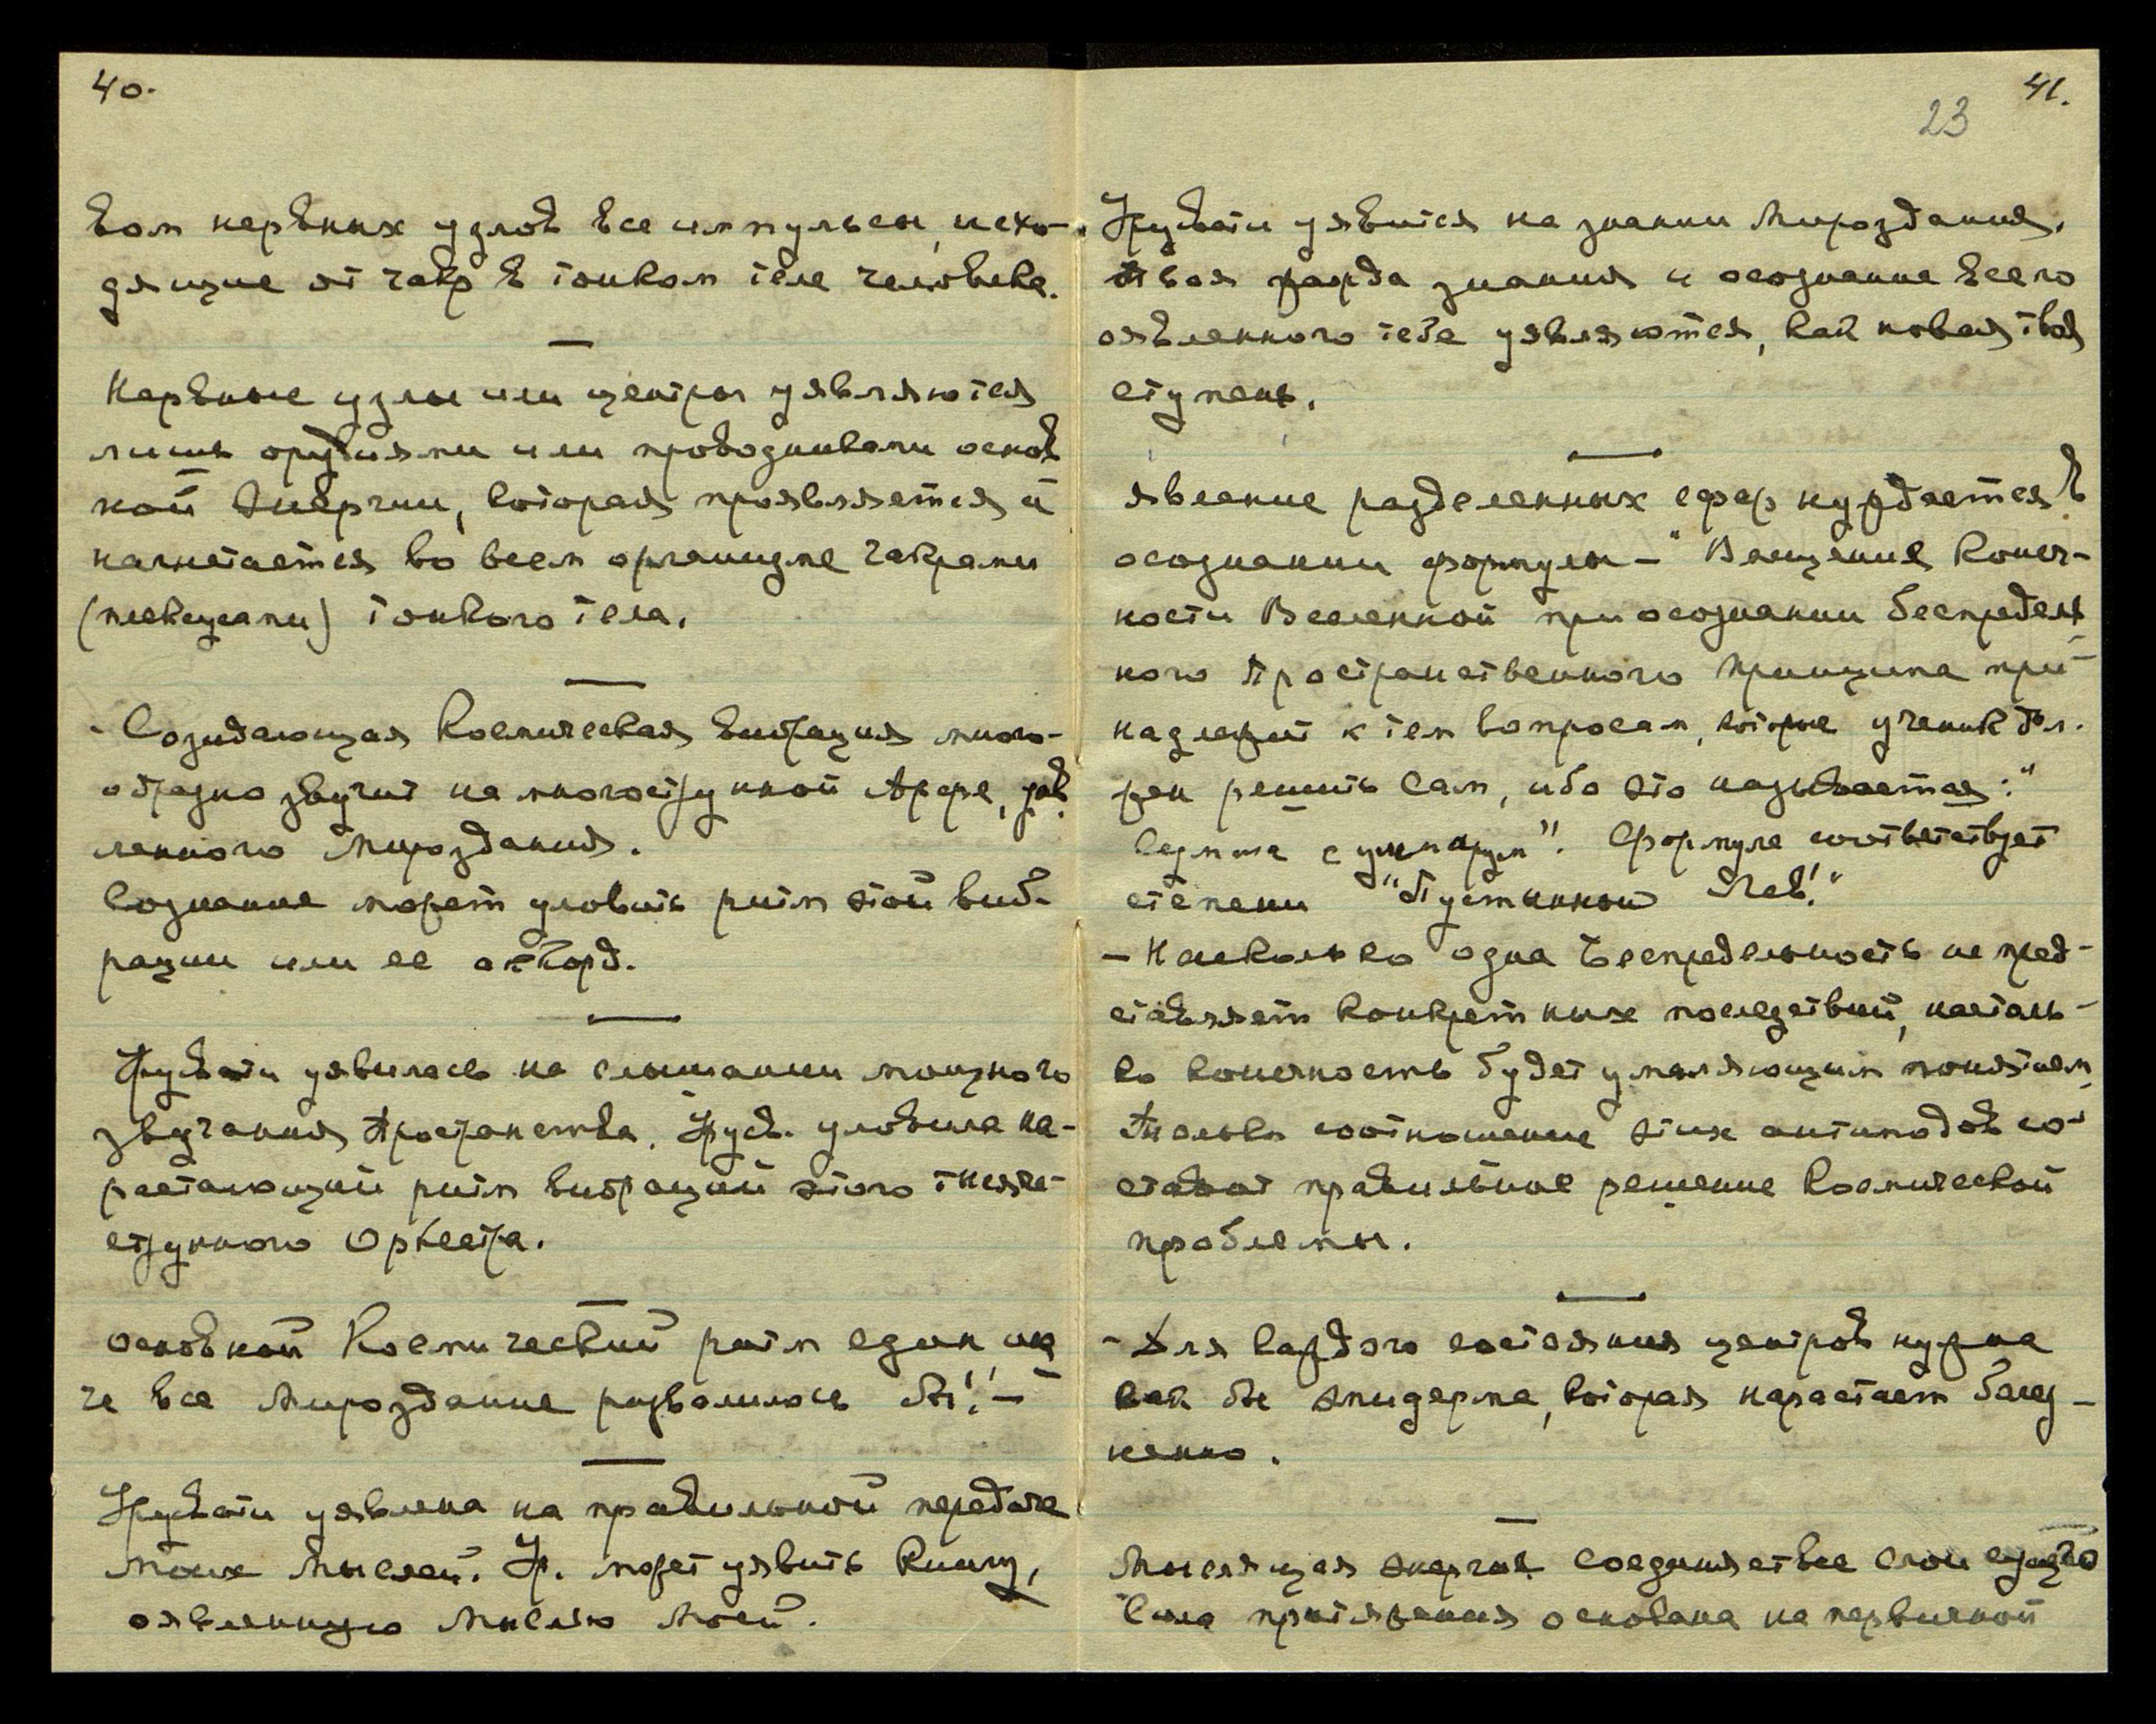 40.
вом нервных узлов все импульсы, исхо-
дящие от чакр в тонком теле человека.
Нервные узлы или центры уявляются
лишь орудиями или проводниками основ
ной энергии, которая проявляется и
нагнетается во всем организме чакрами
(плексусами) тонкого тела.
- Созидающая Космическая вибрация много-
образно звучит на многострунной Арфе, уяв
ленного Мироздания.
Сознание может уловить ритм этой виб-
рации или ее аккорд.
Урусвати уявилась на слышании мощного
звучания Пространства. Урусв. уловила на-
растающий ритм вибраций этого тысяче-
струнного Оркестра.
Основной Космический ритм един, ина
че все Мироздание развалилось бы!! –
Урусвати уявлена на правильной передаче
Моих Мыслей. Ур. может уявить Книгу,
оявленную Мыслью Моей.
41.
23
Урусвати уявится на знании Мироздания.
Твоя жажда знания и осознание всего
оявленного тебе уявляются, как новая твоя
ступень.
явление разделенных сфер нуждается в
осознании формулы – "Вмещение Конеч-
ности Вселенной при осознании беспредель
ного Пространственного Принципа при-
надлежит к тем вопросам, которые ученик дол-
жен решить сам, ибо это называется: "
Формуле соответствует
степени "Пустынный Лев!"
– Насколько одна Беспредельность не пред-
ставляет конкретных последствий, настоль-
ко конечность будет умаляющим понятием,
Только соотношение этих антиподов со-
ставит правильное решение Космической
проблемы.
- Для каждого состояния центров нужна
как бы эпидерма, которая нарастает болез-
ненно.
Мыслящая энергия соединяет все слои сущего
Сила притяжения основана на первичной